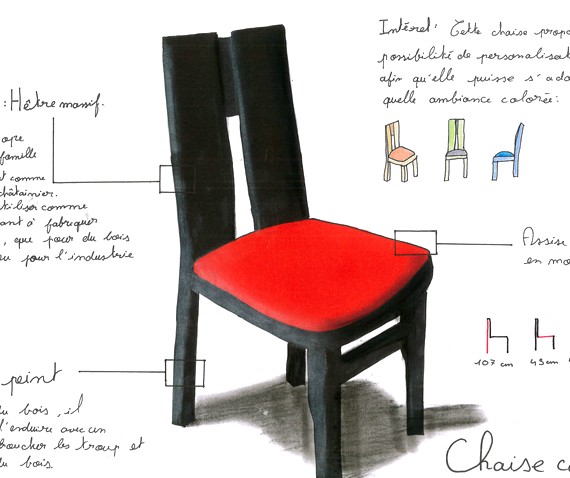 Intérêt: Cette chaise propo
possibilité de personalisat
afin qu'elle puisse s'ada
quelle ambiance colorée:
: Hêtre massif.
ope
famille
t comme
châtaînier.
utiliser comme
ant à fabriquer
, que pour du bois
u pour l'industrie
Assise
en mo
107 cm
43 cm
peint
du bois, il
l'enduire avec un
boucher les troup et
du bois.
Chaise c